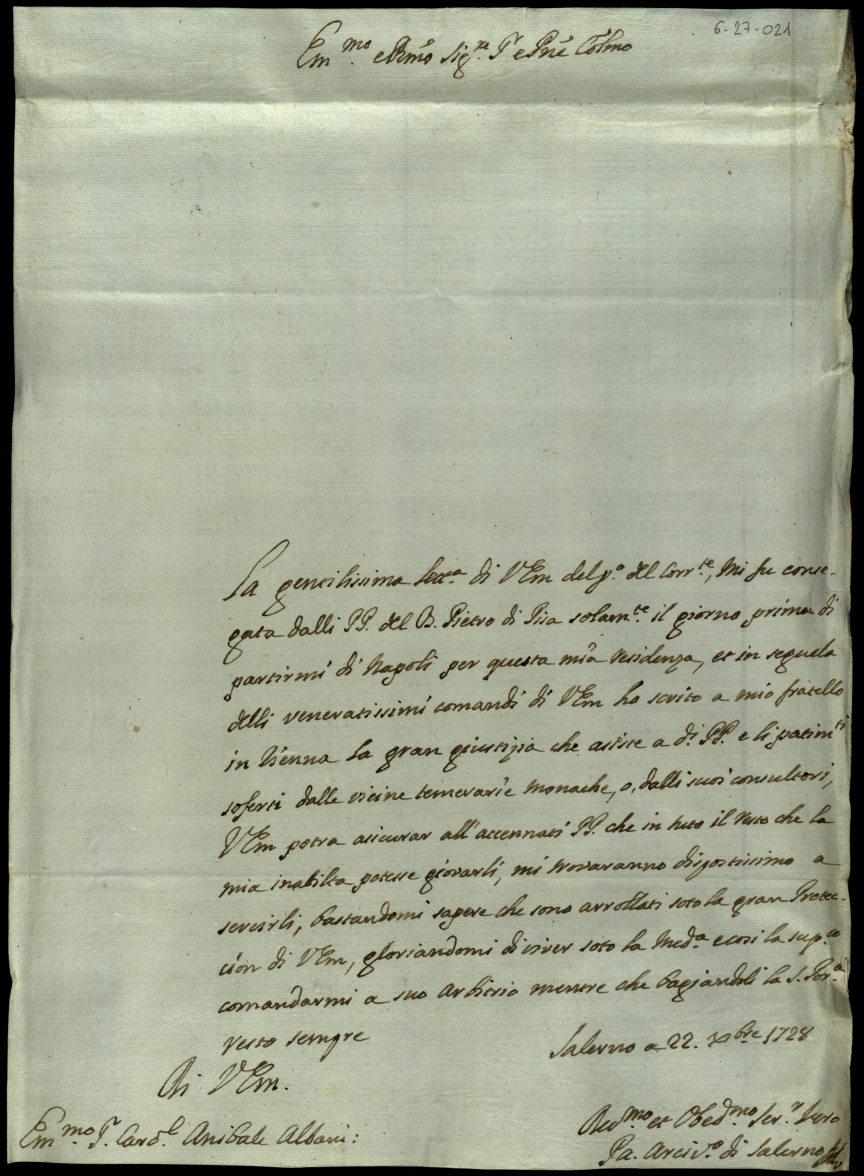 6-27-021
Em.mo e Rmo Sig.re P. e Prne Colmo
La gentilissima lett.a di V Em del p.o del Corr.te, mi fu conse-
gata dalli PP. del B. Pietro di Pisa solam.te il giorno prima di
partirmi di Napoli per questa mia residenza, et in sequela
delli veneratissimi comandi di V Em ho scrito a mio fratello
in Vienna la gran giustizia che asiste a d.i PP. e li patim.ti
soferti dalle vicine temerarie Monache, o, dalli suoi consultori,
V Em potra asicurar all'accennati PP. che in tuto il resto che la
mia inabilta potesse giovarli, mi trovaranno dispostissimo a
servirli, bastandomi sapere che sono arrollati soto la gran Protec-
cion di V Em, gloriandomi di viver soto la med.a e cosi la sup.co
comandarmi a suo arbitrio mentre che bagiandoli la S. Por.a
resto sempre
Salerno a 22. Xbre 1728
Di V Em.
Em.mo P. Card.l Anibale Albani:
Rev.mo et Obed.mo Ser.r
Pa. Arciv.o di Salerno